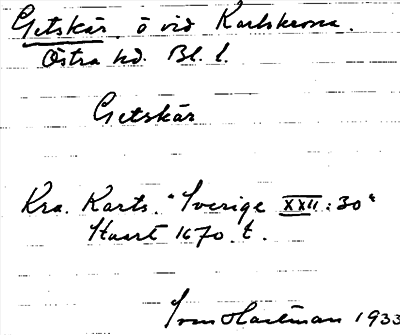 Getskär, ö vid Karlskrona.
Östra hd. Bl. l.
Getskär
Kra. Karts. "Sverige XXII:30"
Staart 1670 t.
Ivar Hartman 1933